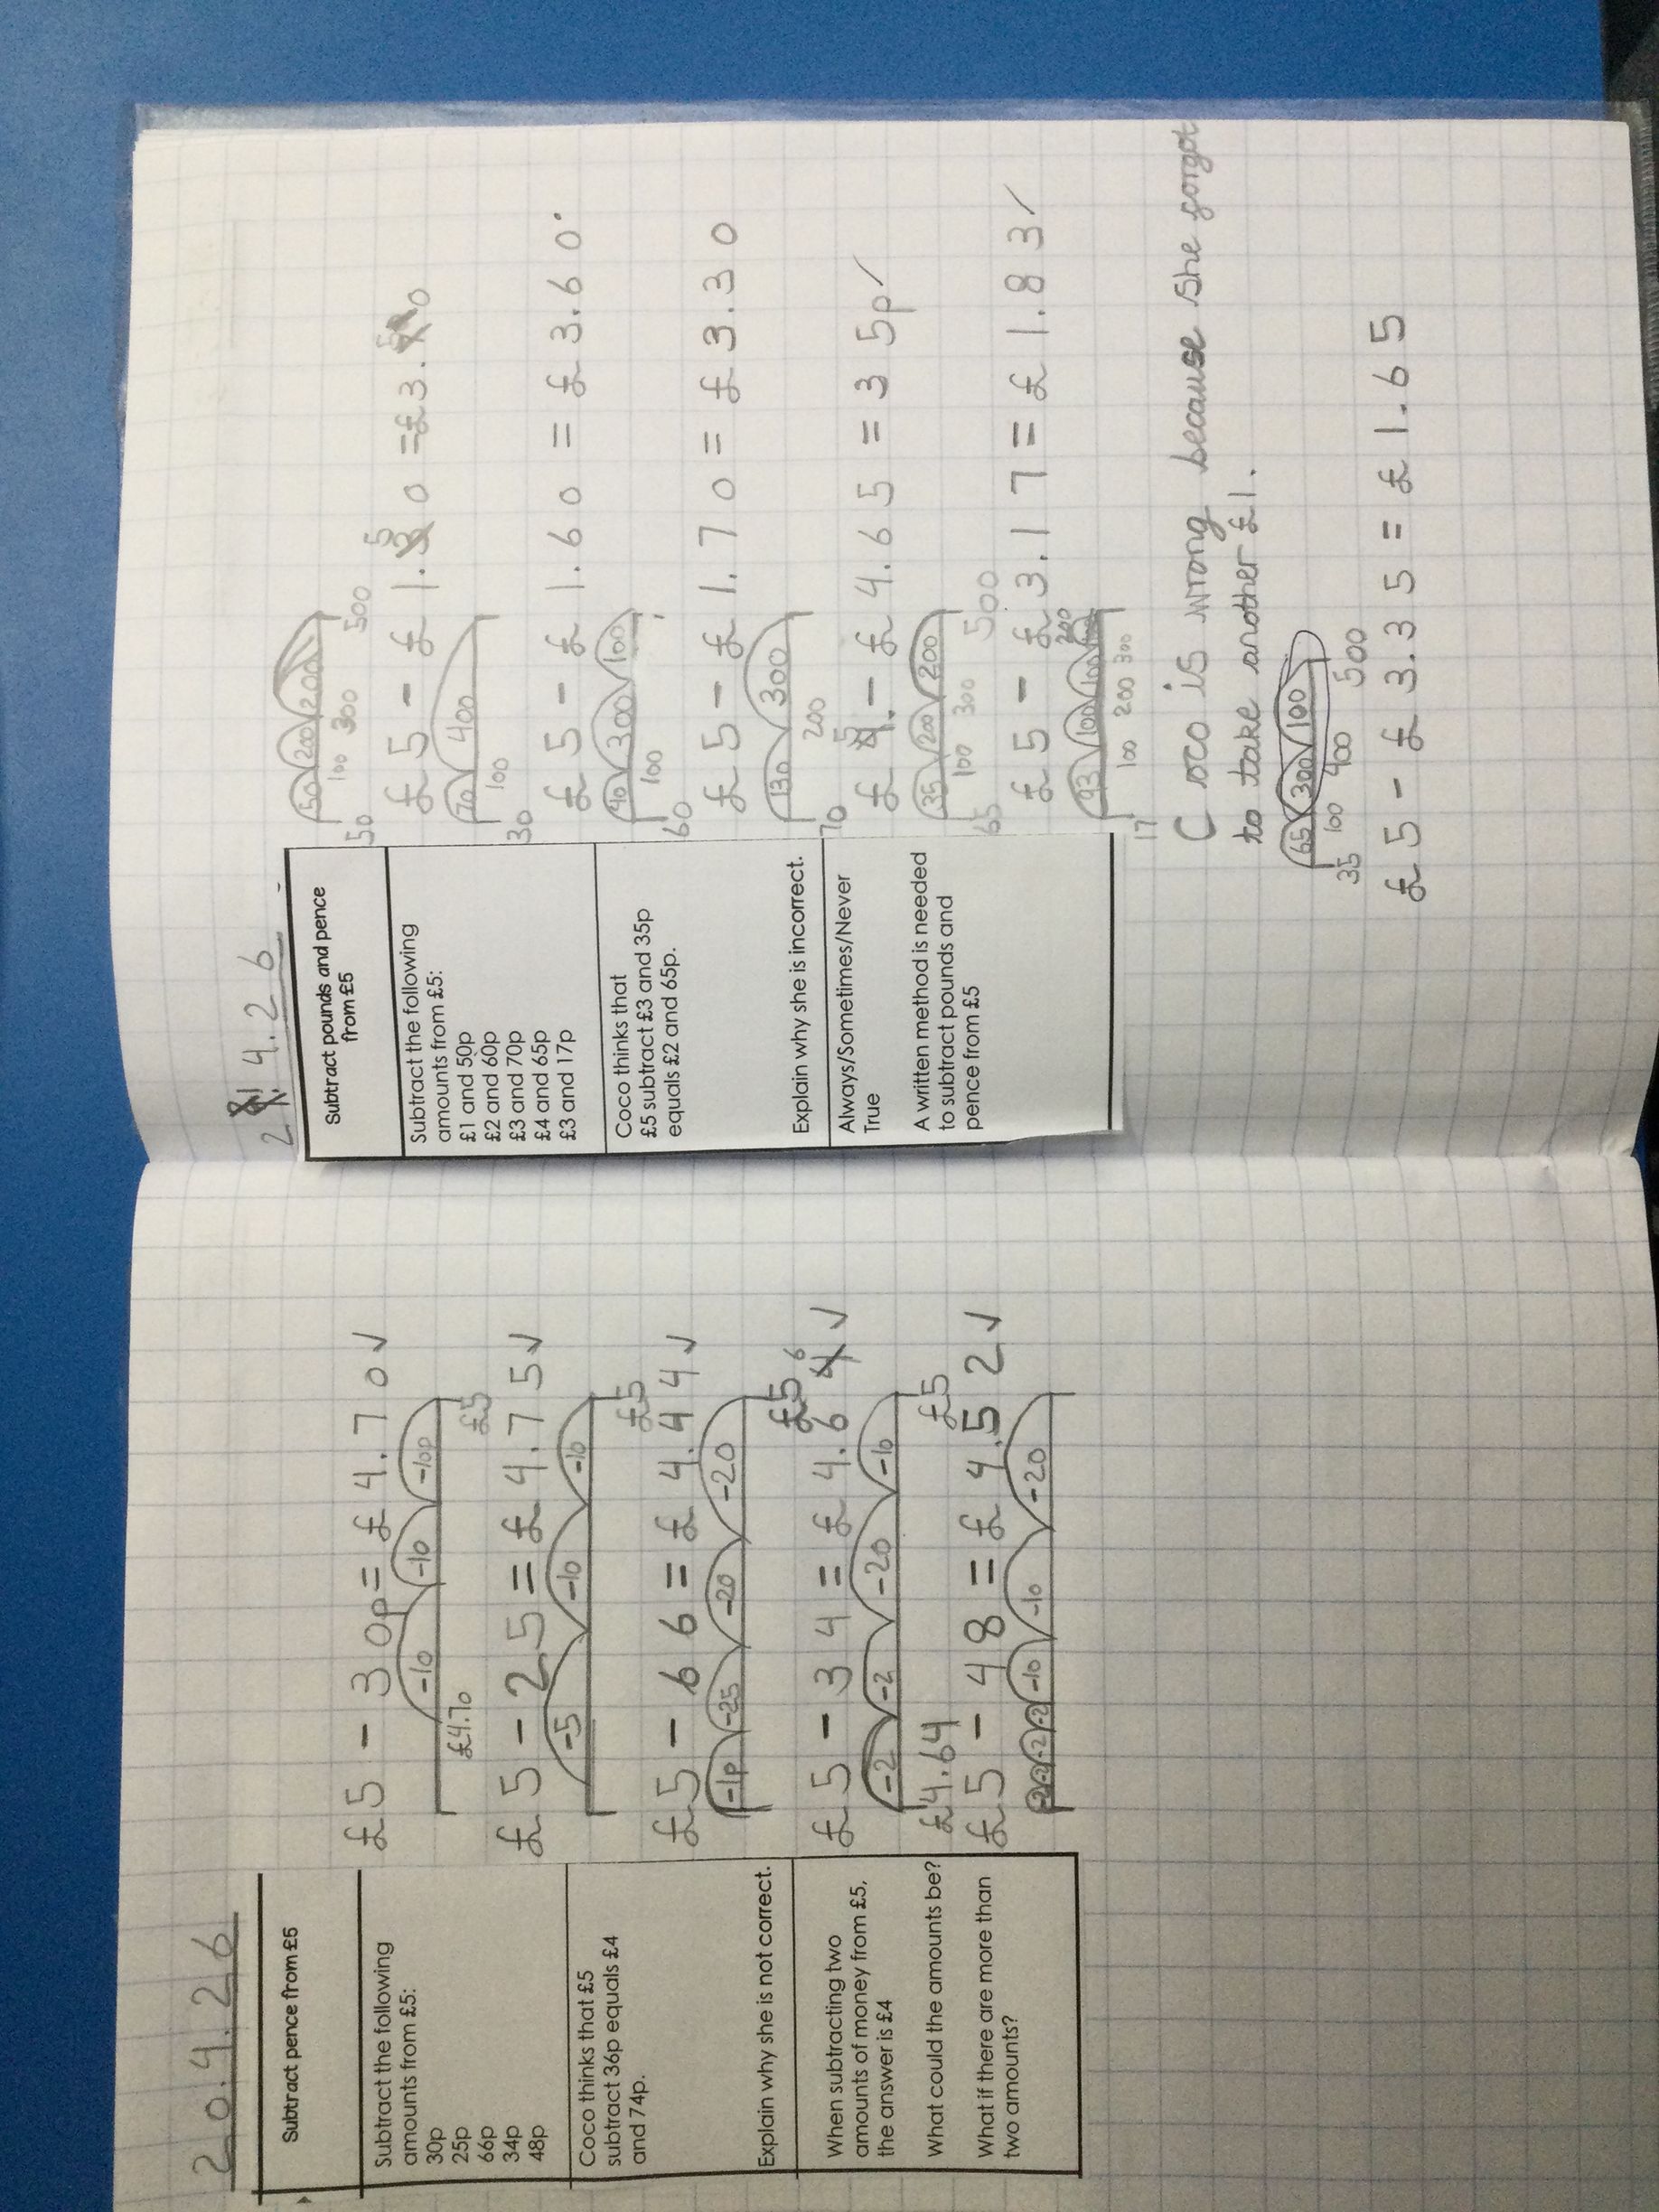 20.4.26
Subtract pence from £5
Subtract the following
amounts from £5:
30p
25p
66p
34p
48p
Coco thinks that £5
subtract 36p equals £4
and 74p.
Explain why she is not correct.
When subtracting two
amounts of money from £5,
the answer is £4
What could the amounts be?
What if there are more than
two amounts?
£5 - 30p = £4.70 ✓
-10 -10 -10p
£4.70 £5
£5 - 25 = £4.75 ✓
-5 -10 -10
£5
£5 - 66 = £4.44 ✓
-1p -25 -20 -20
£5
£5 - 34 = £4.66 ✓
-2 -2 -20 -10
£4.64 £5
£5 - 48 = £4.52 ✓
-2 -2 -2 -2 -10 -10 -20
21.4.26
Subtract pounds and pence
from £5
Subtract the following
amounts from £5:
£1 and 50p
£2 and 60p
£3 and 70p
£4 and 65p
£3 and 17p
Coco thinks that
£5 subtract £3 and 35p
equals £2 and 65p.
Explain why she is incorrect.
Always/Sometimes/Never
True
A written method is needed
to subtract pounds and
pence from £5
50 200 200
50 100 300 500
£5 - £1.50 = £3.50
70 400
30 100
£5 - £1.60 = £3.60
40 300 100
60 100
£5 - £1.70 = £3.30
130 300
70 200
£5 - £4.65 = 35p ✓
35 200 200
65 100 300 500
£5 - £3.17 = £1.83 ✓
200
100 100
17 100 200 300
Coco is wrong because she forgot
to take another £1.
65 300 100
35 100 400 500
£5 - £3.35 = £1.65